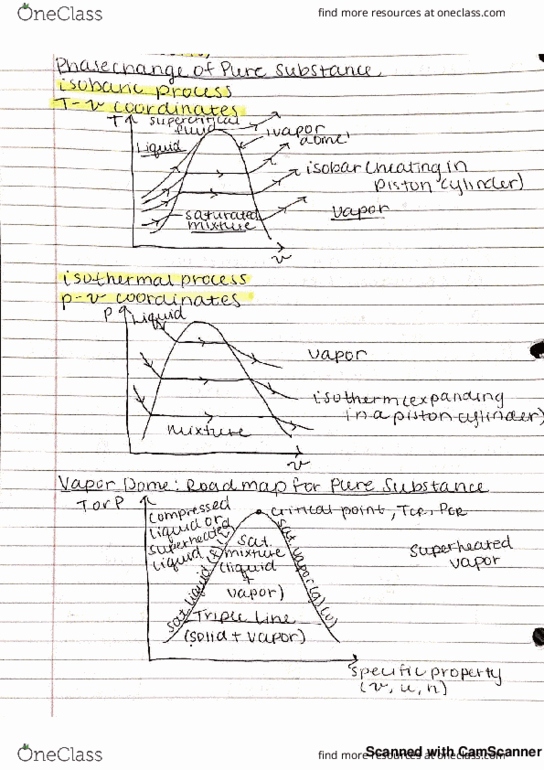 OneClass
find more resources at oneclass.com
Phasechange of Pure Substance.
isobaric process
T-v coordinates
T
supercritical
fluid
vapor
dome
Liquid
isobar (heating in
piston cylinder)
saturated
mixture
vapor
v
isothermal process
p-v coordinates
P
Liquid
vapor
isotherm (expanding
in a piston cylinder)
mixture
v
Vapor Dome: Roadmap for Pure Substance
T or P
compressed
liquid or
superheated
liquid
critical point, Tcr, Pcr
sat.
mixture
(liquid
+
vapor)
sat liquid (f)(L)
sat vapor (g)(v)
superheated
vapor
Triple Line
(solid + vapor)
specific property
(v, u, h)
OneClass
find more resources at oneclass.com
Scanned with CamScanner